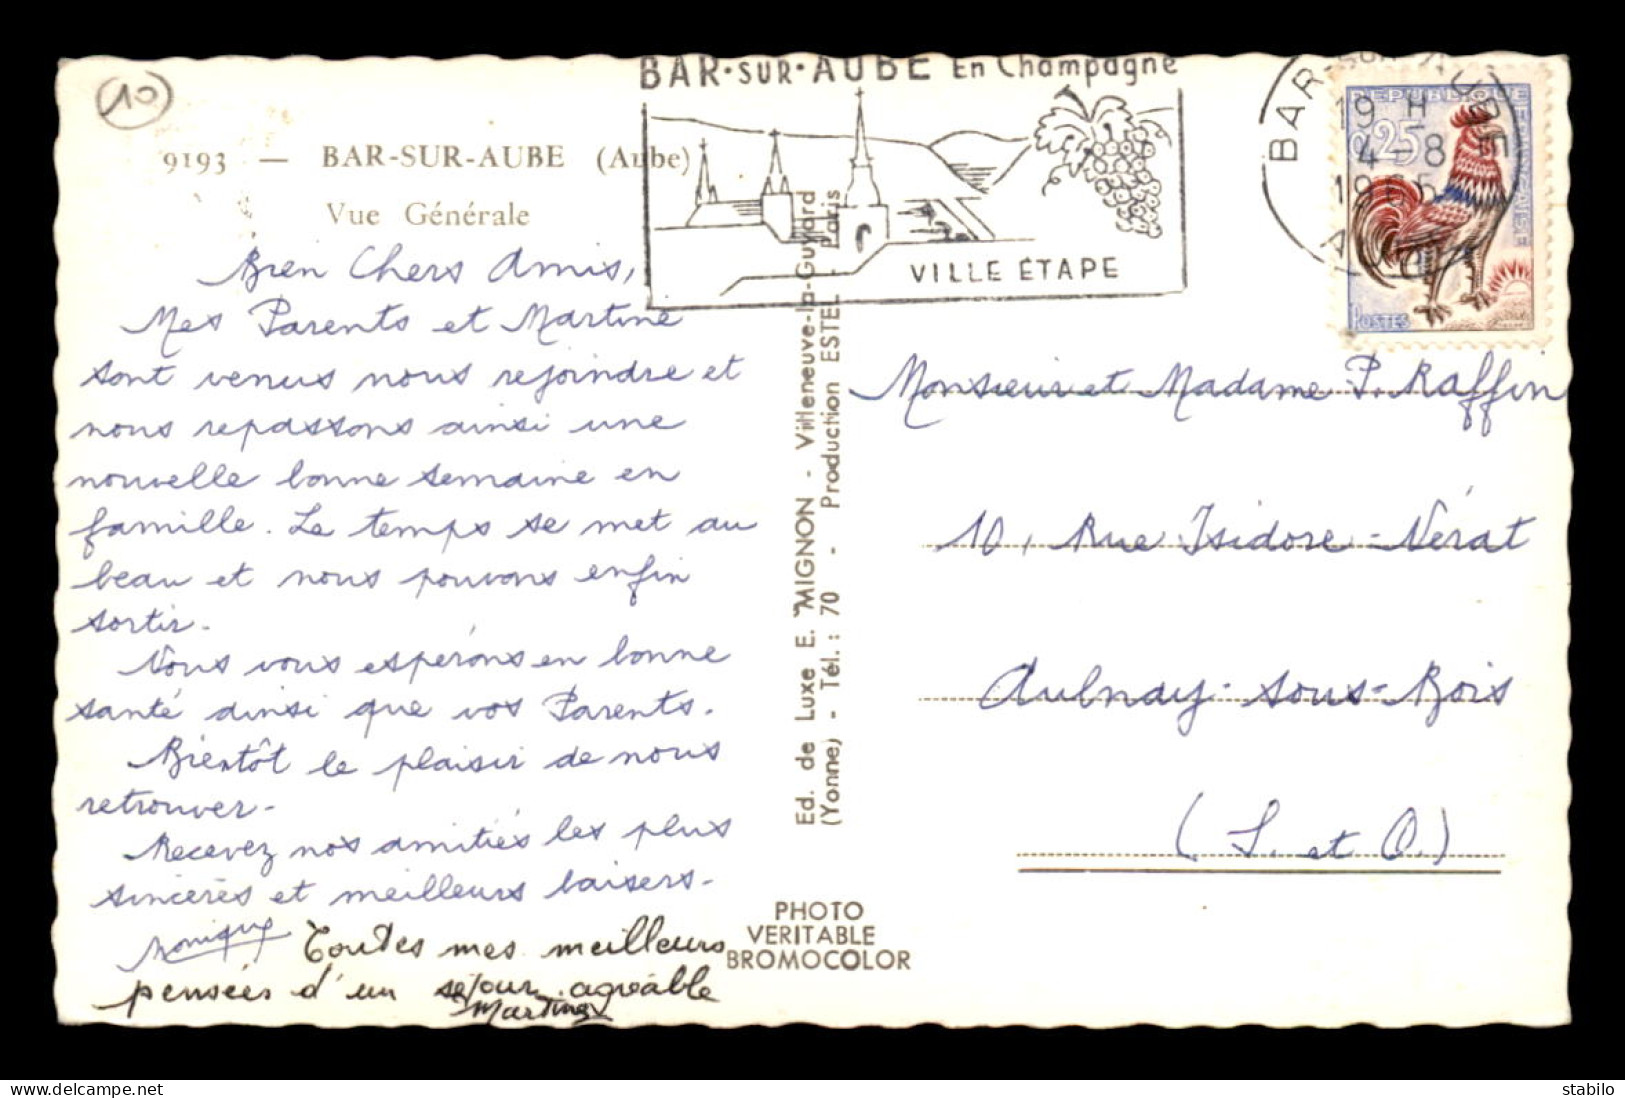 (10)
9193 — BAR-SUR-AUBE (Aube)
Vue Générale
Bien Chers Amis,
Mes Parents et Martine
sont venus nous rejoindre et
nous repassons ainsi une
nouvelle bonne semaine en
famille. Le temps se met au
beau et nous pouvons enfin
sortir.
Nous vous espérons en bonne
santé ainsi que vos Parents.
Bientôt le plaisir de nous
retrouver.
Recevez nos amitiés les plus
sincères et meilleurs baisers.
Monique
Toutes mes meilleurs
pensées d'un séjour agréable
Martine
Ed. de Luxe E. MIGNON - Villeneuve-la-Guyard
(Yonne) - Tél. : 70 - Production ESTEL - Paris
PHOTO
VERITABLE
BROMOCOLOR
BAR·SUR·AUBE En Champagne
VILLE ÉTAPE
BAR-SUR-AUBE
19 H
4-8
1965
AUBE
REPUBLIQUE FRANÇAISE
0,25
POSTES
Monsieur et Madame P. Raffin
10, Rue Isidore-Nérat
Aulnay-sous-Bois
(S. et O.)
stabilo